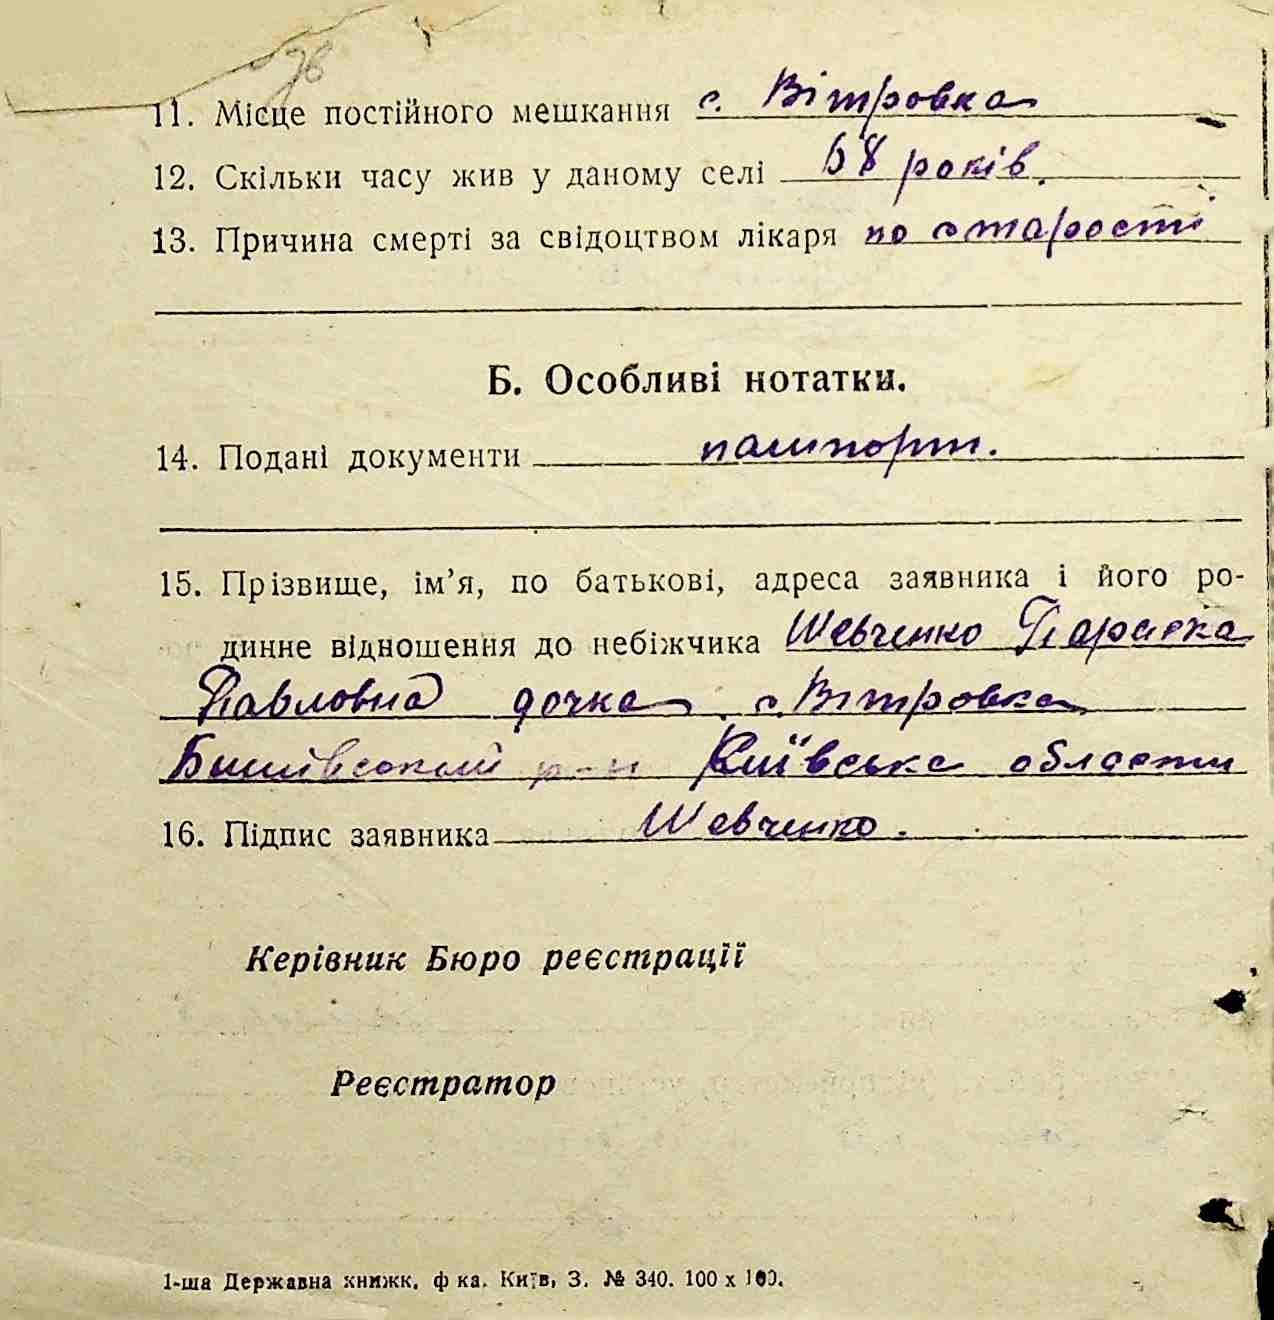 96
11. Місце постійного мешкання с. Вітровка
12. Скільки часу жив у даному селі 68 років.
13. Причина смерті за свідоцтвом лікаря по старості
Б. Особливі нотатки.
14. Подані документи пашпорт.
15. Прізвище, ім’я, по батькові, адреса заявника і його ро-
динне відношення до небіжчика Шевченко Параска
Павловна дочка с. Вітровка
р-н Київська области
16. Підпис заявника Шевченко.
Керівник Бюро реєстрації
Реєстратор
1-ша Державна книжк. ф-ка. Київ, З. № 340. 100 х 100.